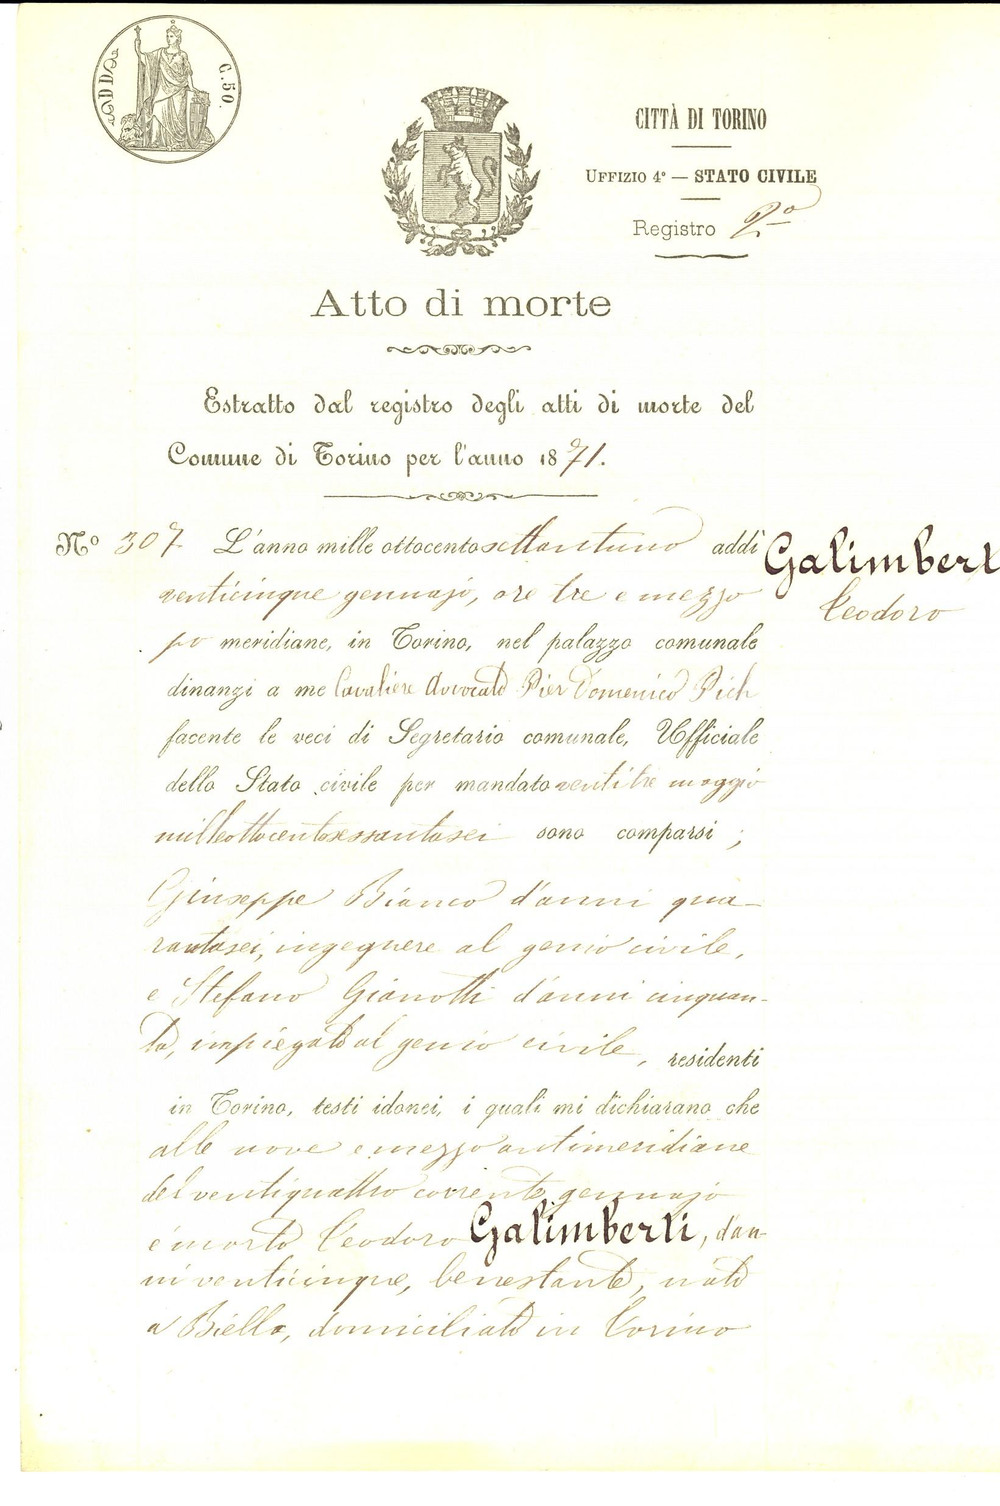 ADD
C. 50.
CITTÀ DI TORINO
UFFIZIO 4° — STATO CIVILE
Registro 2°
Atto di morte
Estratto dal registro degli atti di morte del
Comune di Torino per l'anno 1871.
N° 307 L'anno mille ottocento settantuno addì
Galimberti
Teodoro
venticinque gennajo, ore tre e mezzo
po meridiane, in Torino, nel palazzo comunale
dinanzi a me Cavaliere Avvocato Pier Domenico Pich
facente le veci di Segretario comunale, Ufficiale
dello Stato civile per mandato ventitre maggio
milleottocentosessantasei sono comparsi ;
Giuseppe Bianco d'anni qua-
rantasei, ingegnere al genio civile,
e Stefano Gianotti d'anni cinquan-
ta, impiegato al genio civile, residenti
in Torino, testi idonei, i quali mi dichiarano che
alle nove e mezzo antimeridiane
del ventiquattro corrente gennajo
è morto Teodoro Galimberti, d'an-
ni venticinque, benestante, nato
a Biella, domiciliato in Torino